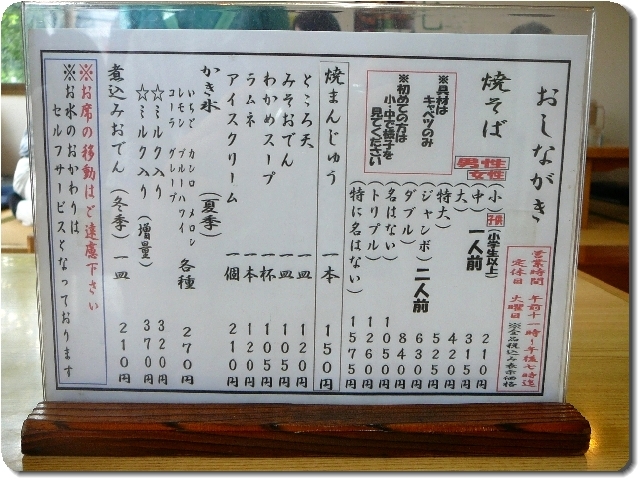 おしながき
営業時間 午前十一時～午後七時迄
定休日 火曜日 ※全品税込み表示価格
焼そば
男性
女性
※具材は
キャベツのみ
※初めての方は
小・中で様子を
見てください
(小) 子供 (小学生以上) 210円
(中) 一人前 315円
(大) 420円
(特大) 525円
(ジャンボ) 二人前 630円
(ダブル) 840円
(名はない) 1050円
(トリプル) 1260円
(特に名はない) 1575円
焼まんじゅう 一本 150円
ところ天 一皿 120円
みそおでん 一皿 105円
わかめスープ 一杯 105円
ラムネ 一本 120円
アイスクリーム 一個 210円
かき氷 (夏季)
いちご カンロ メロン
レモン ブルーハワイ 各種 270円
コーラ
☆ミルク入り 320円
☆ミルク入り (増量) 370円
煮込みおでん (冬季) 一皿 210円
※お席の移動はご遠慮下さい
※お水のおかわりは
セルフサービスとなっております